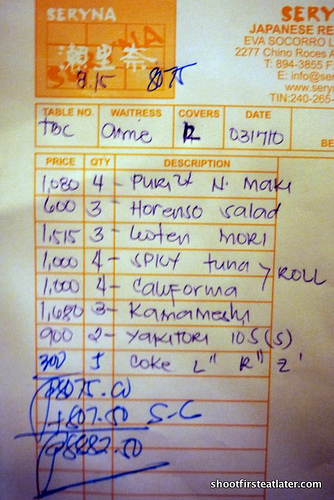 SERYNA
瀬里奈
8.15 8075
SERY
JAPANESE RE
EVA SOCORRO L
2277 Chino Roces A
T: 894-3855 F
E: info@se
www.sery
TIN:240-265-
TABLE NO. WAITRESS COVERS DATE
TBC 031710
BE
PRICE QTY DESCRIPTION
1,080 4 - N. Maki
600 3 - Horenso Salad
1,515 3 - Mori
1,000 4 - Spicy tuna
1,000 4 - California > ROLL
1,680 3 - Kamameshi
900 2 - Yakitori 10S(S)
300 5 Coke L" R" Z'
₱8075.00
+807.50 S-C
₱8882.50
shootfirsteatlater.com